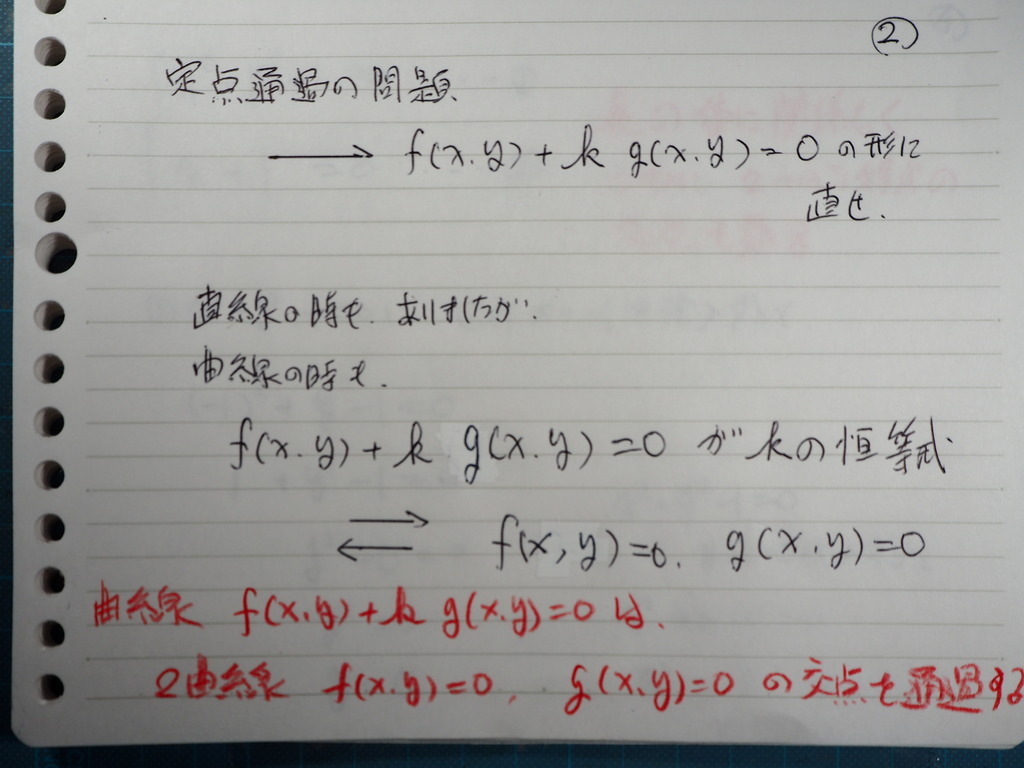 ②
定点通過の問題
→ f(x.y)+k g(x.y)=0 の形に
直せ.
直線の時も.ありましたが.
曲線の時も.
f(x.y)+k g(x.y)=0 がkの恒等式
⇄ f(x,y)=0. g(x.y)=0
曲線 f(x.y)+k g(x.y)=0 は.
2曲線 f(x.y)=0, g(x.y)=0 の交点を通過する